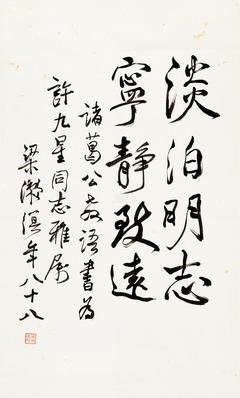 淡泊明志
寧靜致遠
諸葛公教語書為
許九星同志雅屬
梁漱溟年八十八